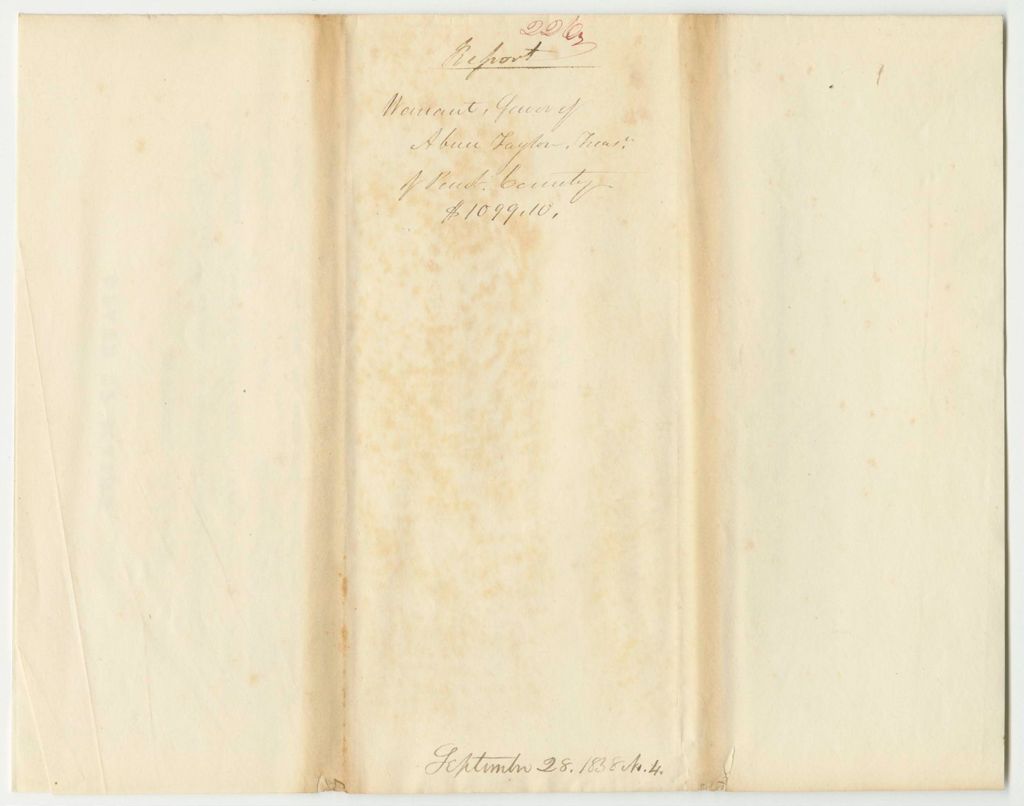 226
Report
Warrant, favor of
Abner Taylor, Treasr.
of Penob. County
$1099.10.
September 28. 1838 No. 4.